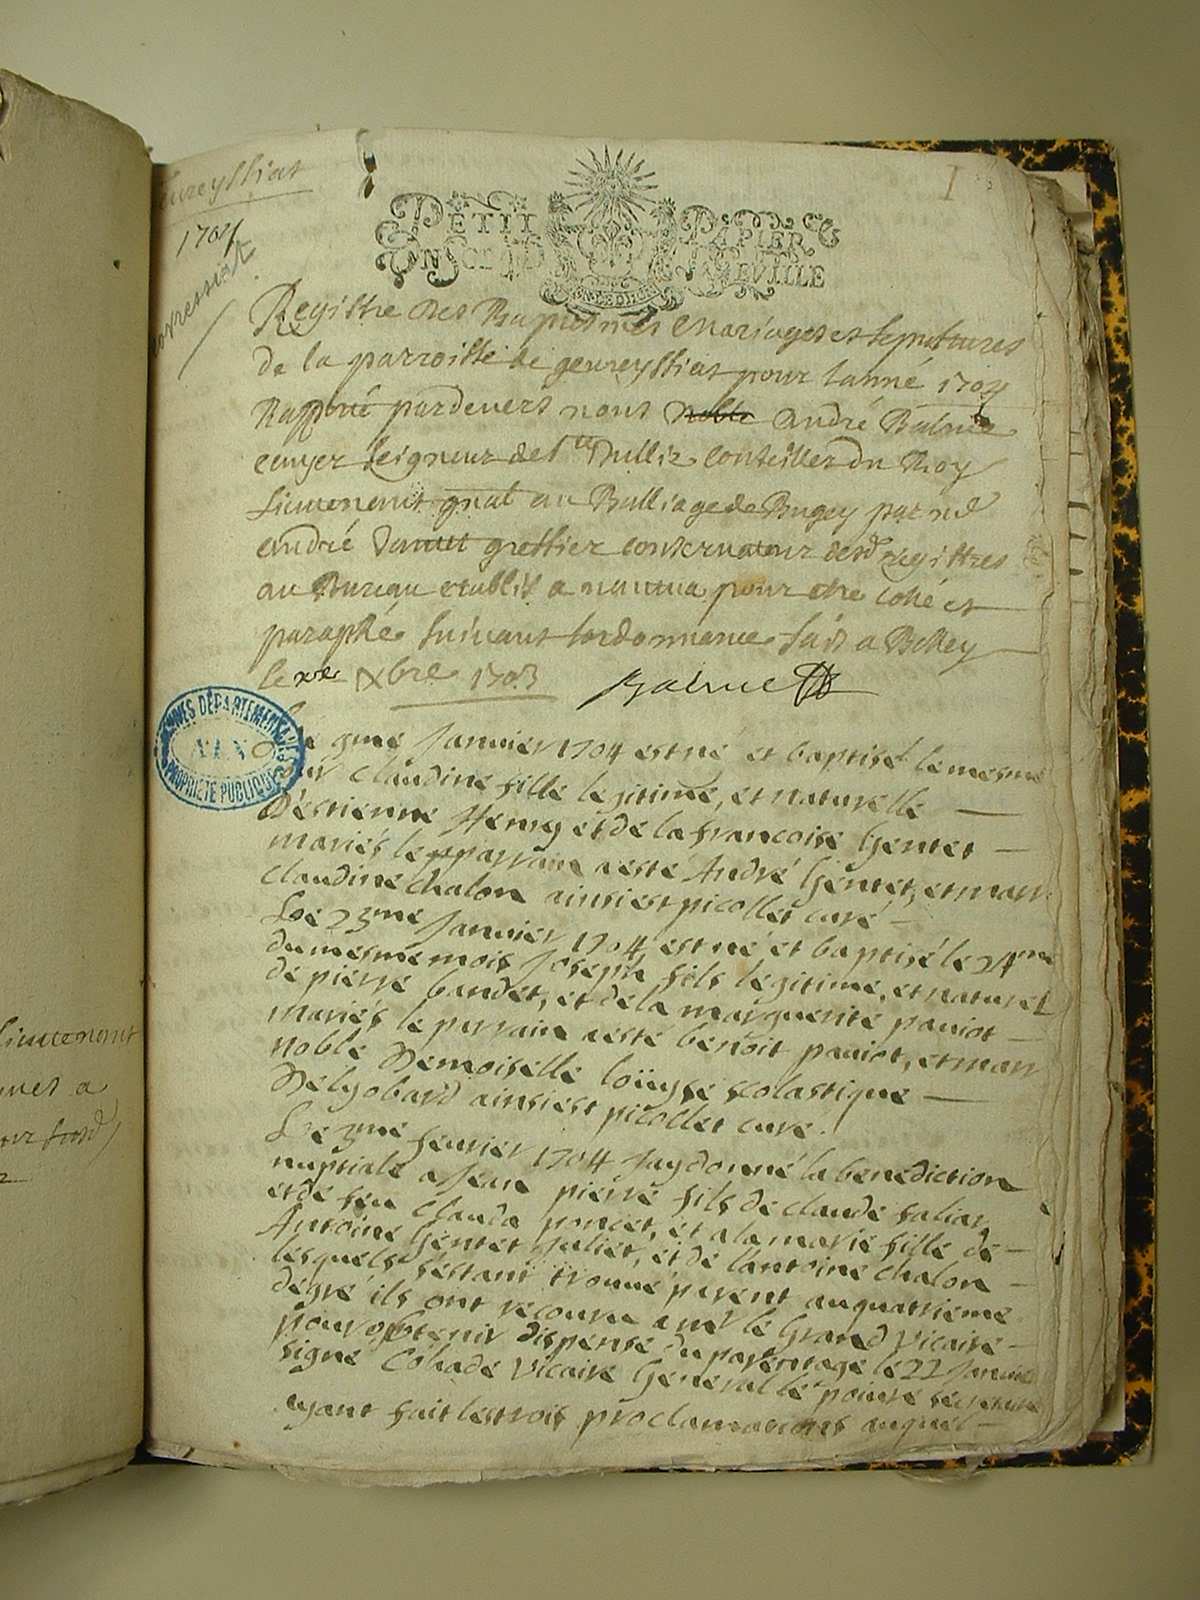 Gevreyssiat
1704
PETIT PAPIER
UN SOL LA FEUILLE
1
Registre des Baptesmes Mariages et sepultures
de la parroisse de gevreyssiat pour lanné 1704
pardevers nous noble André Balme
ecuyer seigneur de Ste Jullie Conseiller du Roy
Lieutenant gnal au Balliage de Bugey par
André greffier conservateur desd registres
au Bureau etablit a nantua pour etre coté et
paraphé suivant lordonnance fait a Belley
le xbre 1703 Balme
ARCHIVES DÉPARTEMENTALES
AIN
PROPRIÉTÉ PUBLIQUE
Le 9me Janvier 1704 est né et baptisé le mesme
jour claudine fille legitime, et naturelle
D'estienne Henry et de la francoise Gentet
mariés le parrain a esté André Gentet, et marr.
claudine chalon ainsi est picollet curé
Le 23me Janvier 1704 est né et baptisé le 24me
du mesme mois Joseph fils legitime, et naturel
de pierre bandet, et de la marguerite paviot
mariés le parrain a esté benoit paviot, et marr
noble Demoiselle loüyse scolastique
Delyobard ainsi est picollet curé.
Le 3me fevrier 1704 Jay donné la benediction
nuptiale a Jean pierre fils de claude
et de feu clauda poncet, et a la marie fille de
Antoine Gentet Juliet, et de lantoine chalon
lesquels sestant trouvé parent au quatrieme
degré ils ont recouru a mr le Grand Vicaire
pour obtenir dispense du parentage le 22 Janvier
signé Cohade Vicaire General secretaire
ayant fait les trois proclamations auquel
Lieutenant